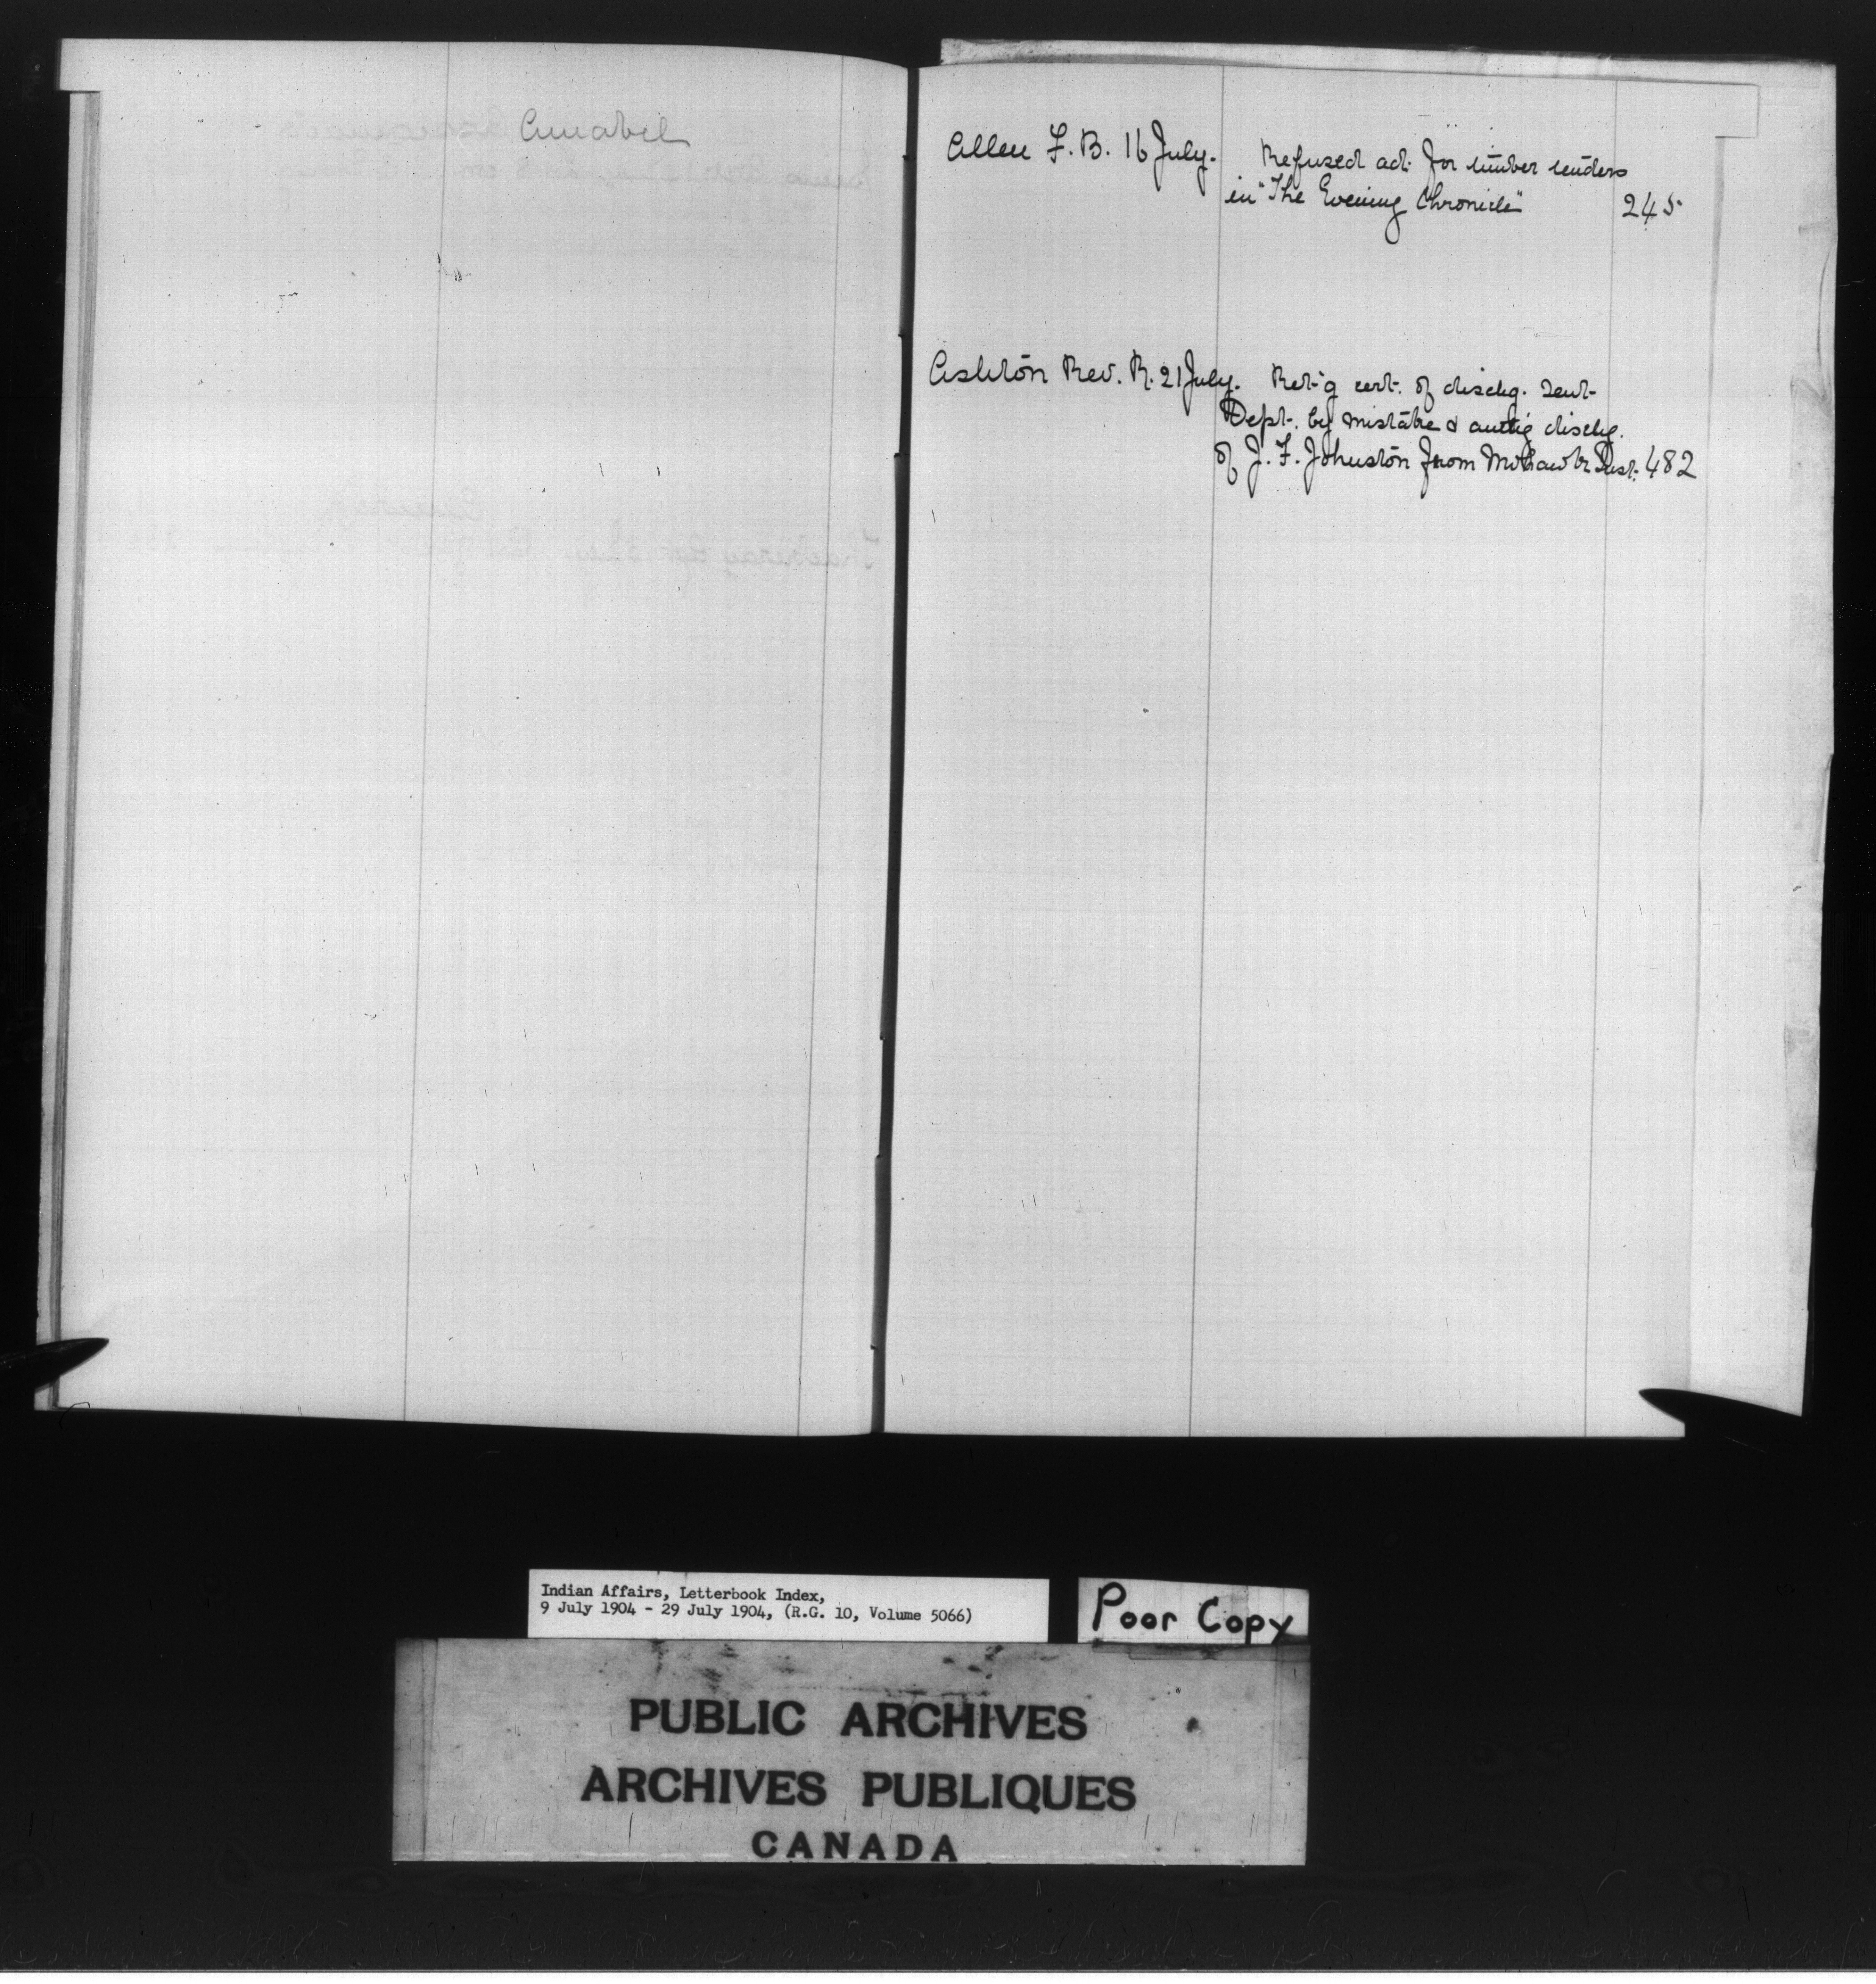 Annabel
Allen F. B. 16 July. Refused adt. for timber tenders
in "The Evening Chronicle" 245
Ashton Rev. R. 21 July. Ret'g cert. of dischg. sent
Dept. by mistake & autg dischg.
of J. F. Johnston from Mohawk Inst. 482
Indian Affairs, Letterbook Index,
9 July 1904 - 29 July 1904, (R.G. 10, Volume 5066)
Poor Copy
PUBLIC ARCHIVES
ARCHIVES PUBLIQUES
CANADA